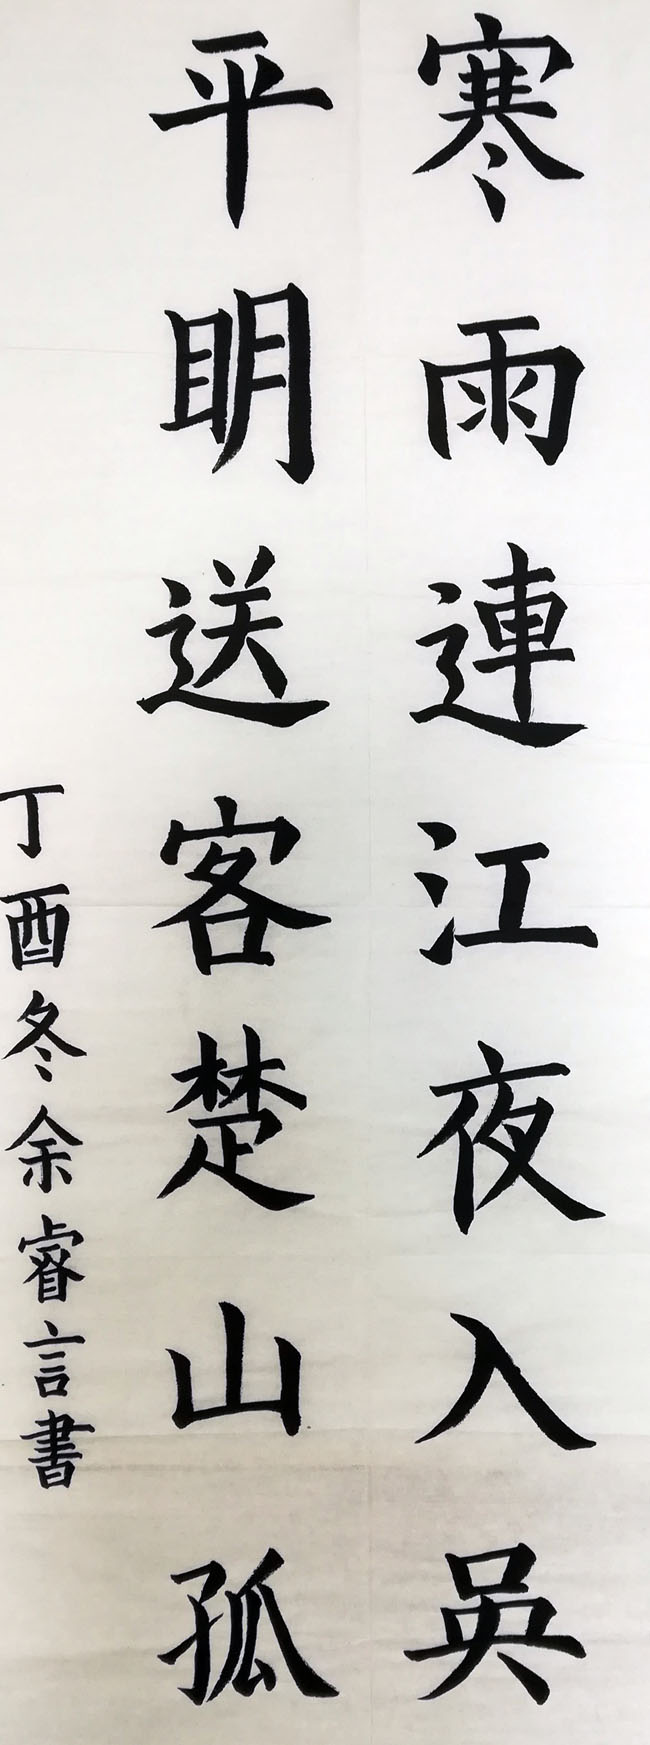 寒雨連江夜入吳
平明送客楚山孤
丁酉冬余睿言書